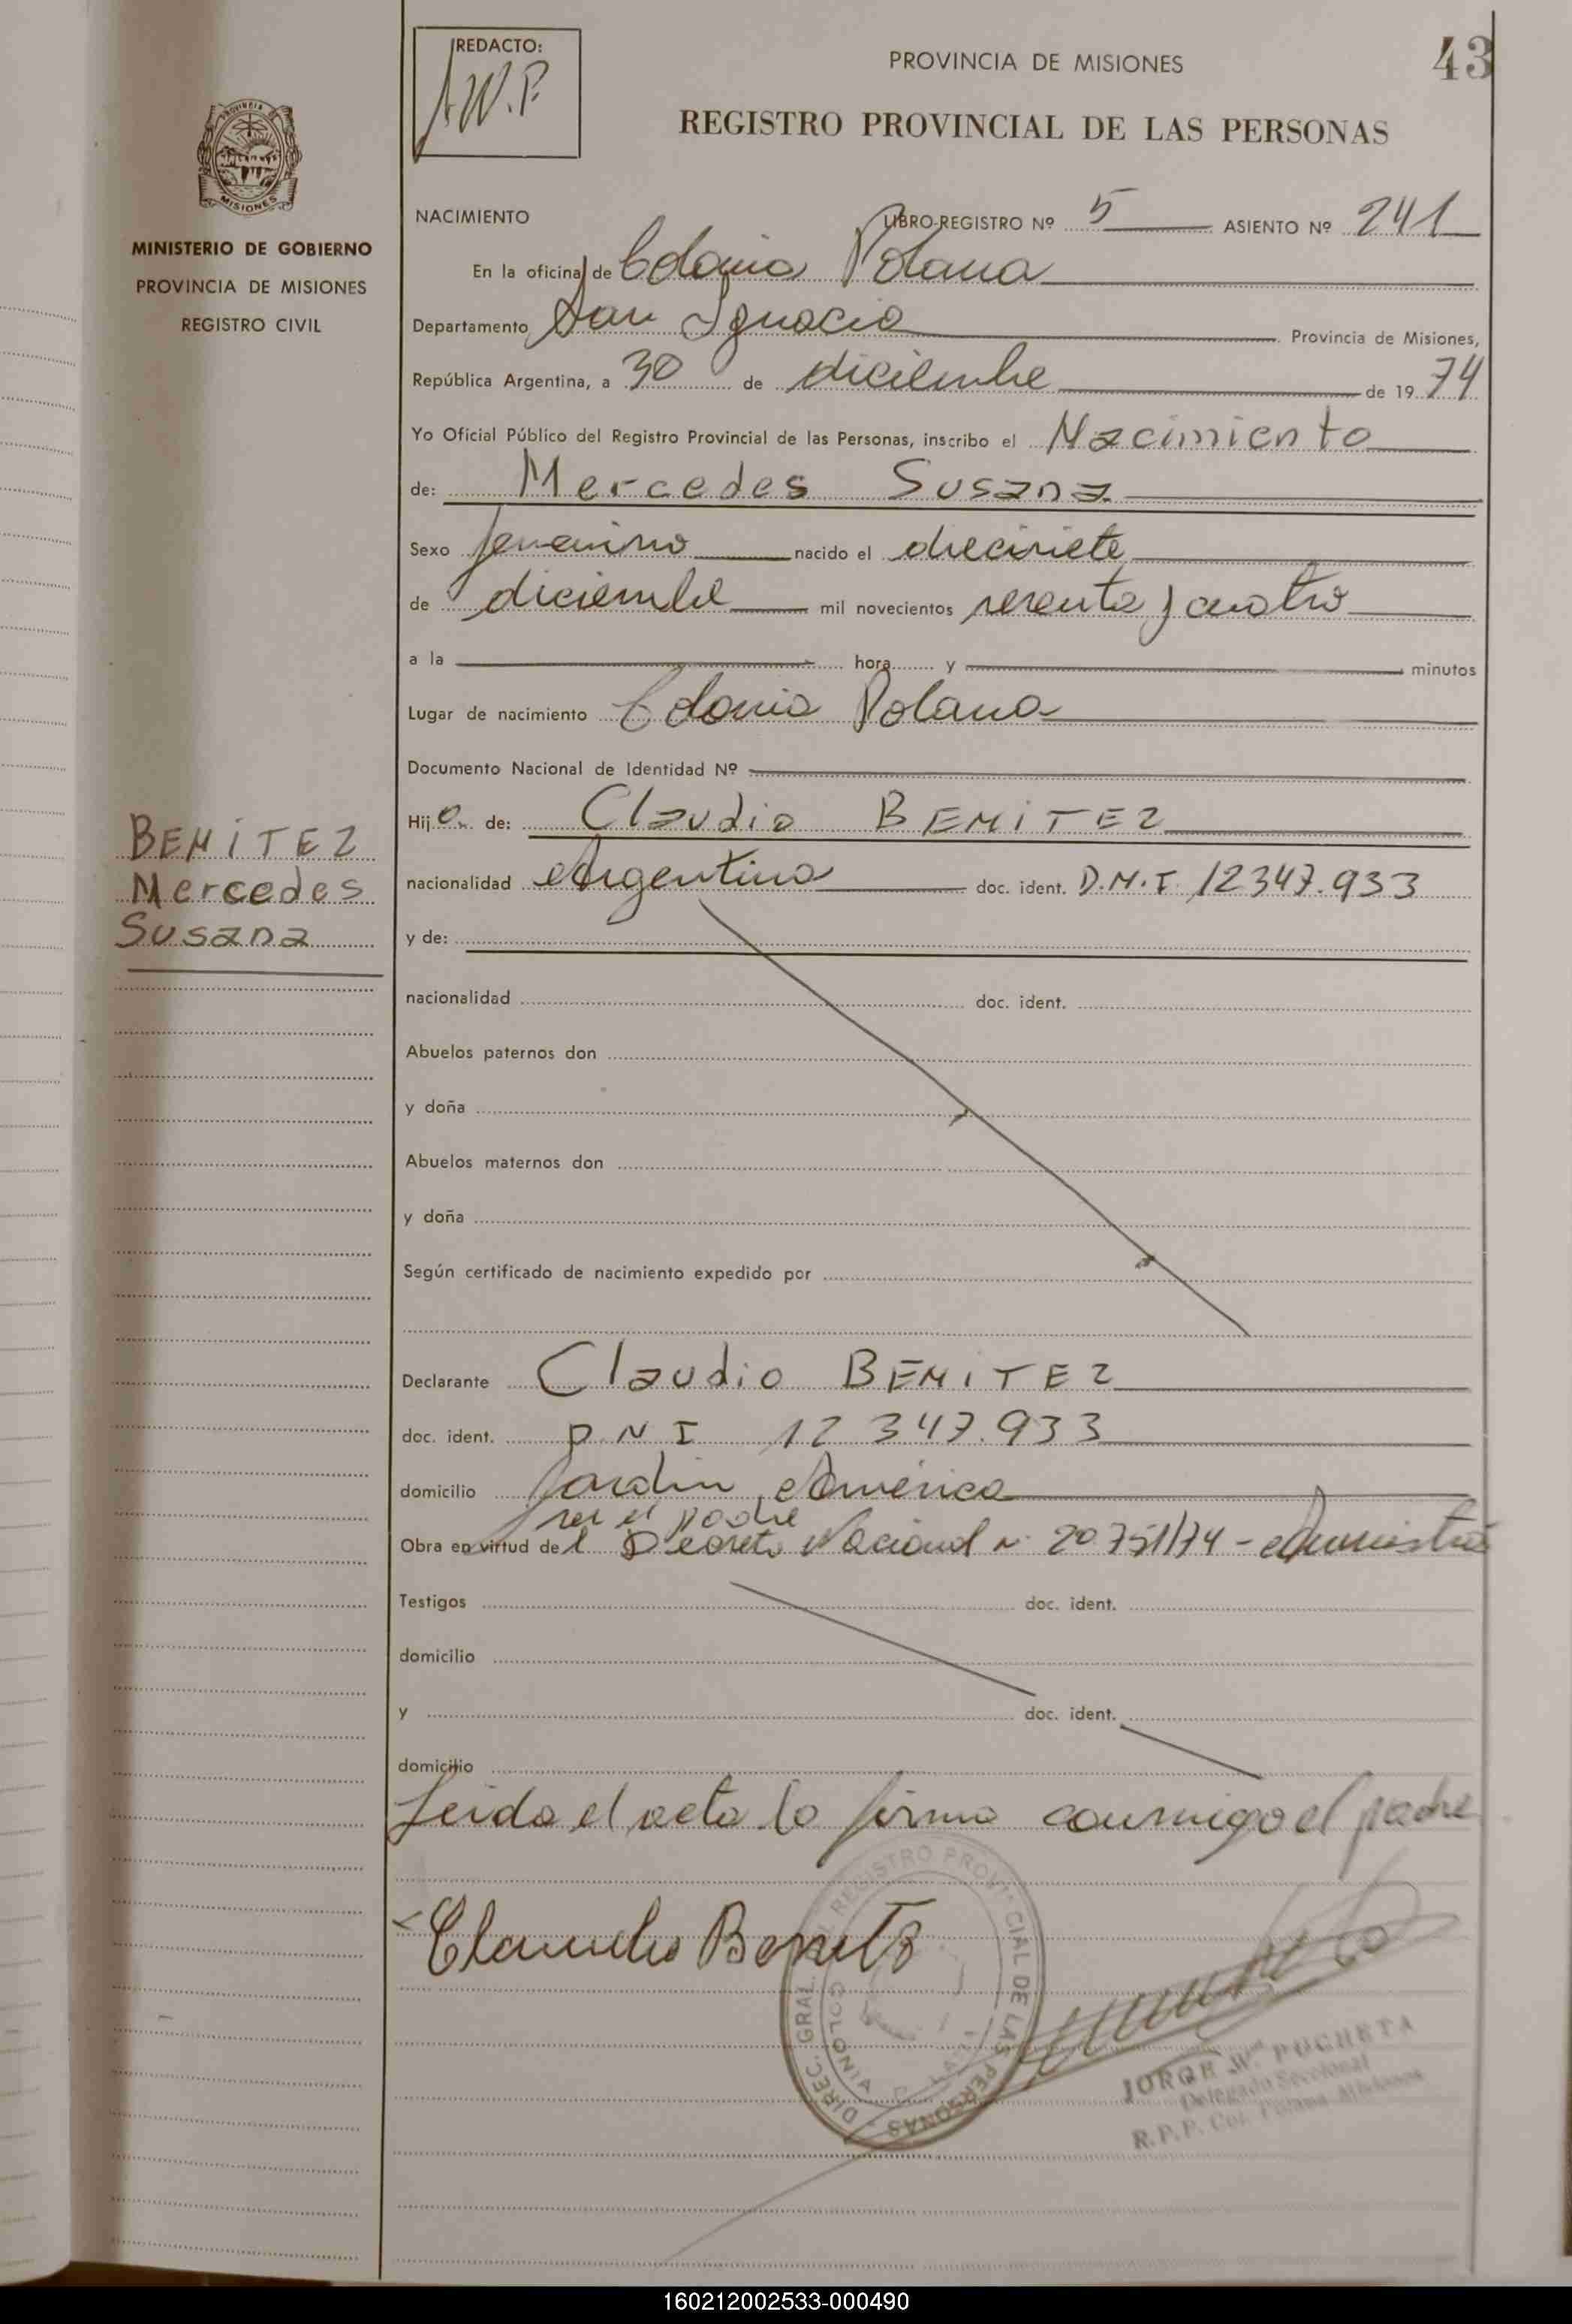 REDACTO:
J.W.P.
PROVINCIA DE MISIONES
43
REGISTRO PROVINCIAL DE LAS PERSONAS
MISIONES
MINISTERIO DE GOBIERNO
PROVINCIA DE MISIONES
REGISTRO CIVIL
NACIMIENTO LIBRO-REGISTRO Nº 5 ASIENTO Nº 241
En la oficina de Colonia Polana
Departamento San Ignacio Provincia de Misiones,
República Argentina, a 30 de diciembre de 1974
Yo Oficial Público del Registro Provincial de las Personas, inscribo el Nacimiento
de: Mercedes Susana
Sexo femenino nacido el diecisiete
de diciembre mil novecientos setenta y cuatro
a la hora y minutos
Lugar de nacimiento Colonia Polana
Documento Nacional de Identidad Nº
Hija de: Claudio BENITEZ
BENITEZ
Mercedes
Susana
nacionalidad Argentina doc. ident. D.N.I. 12347.933
y de:
nacionalidad doc. ident.
Abuelos paternos don
y doña
Abuelos maternos don
y doña
Según certificado de nacimiento expedido por
Declarante Claudio BENITEZ
doc. ident. D.N.I 12 347.933
domicilio Jardin America
ser el padre
Obra en virtud del Decreto Nacional Nº 20751/74 - Amnistia
Testigos doc. ident.
domicilio
y doc. ident.
domicilio
Leida el acta la firma conmigo el padre
Claudio Benitez
DIREC. GRAL. DEL REGISTRO PROVINCIAL DE LAS PERSONAS
JORGE W. PUCHETA
Delegado Seccional
R.P.P. Col. Polana Misiones
160212002533-000490